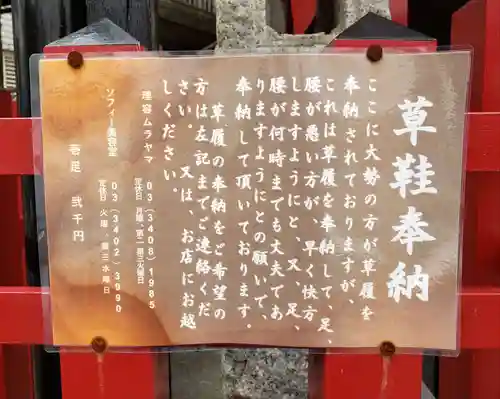 草鞋奉納
ここに大勢の方が草履を
奉納されておりますが、
これは草履を奉納して、足、
腰が悪い方が、早く快方
しますようにと、又、足、
腰が何時までも丈夫であ
りますようにとの願いで、
奉納して頂いております。
草履の奉納をご希望の
方は左記までご連絡くだ
さい。又は、お店にお越
しください。
理容ムラヤマ 03(3408)1985
定休日 月曜、第二・第三火曜日
ソフィー美容室 03(3402)3990
定休日 火曜、第三水曜日
壱足 弐千円